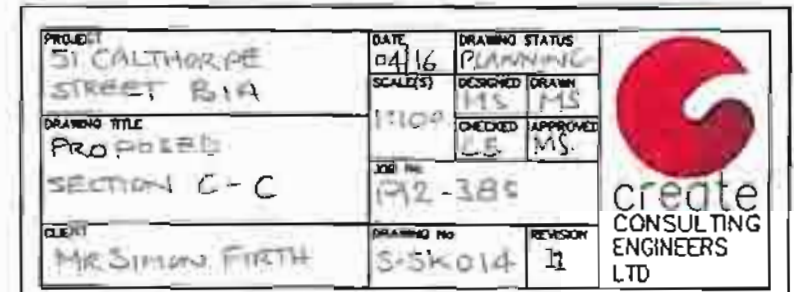 PROJECT
51 CALTHORPE
STREET BIA
DRAWING TITLE
PROPOSED
SECTION C-C
CLIENT
MR SIMON FIRTH
DATE
04/16
DRAWING STATUS
PLANNING
SCALE(S)
1:100
DESIGNED
MS
DRAWN
MS
CHECKED
APPROVED
MS.
JOB No
P12-385
DRAWING No
S-SK014
REVISION
create
CONSULTING
ENGINEERS
LTD